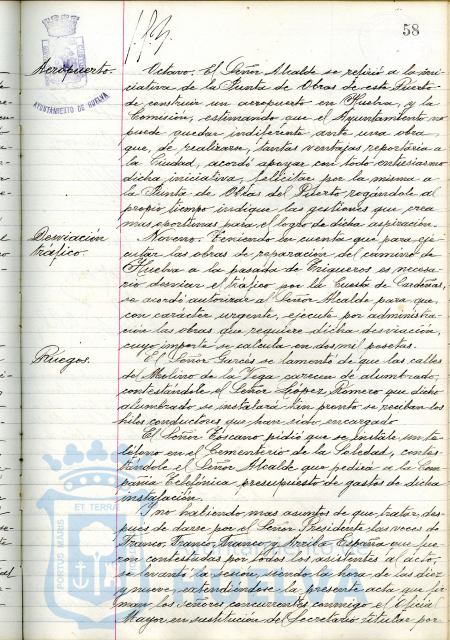 58
Aeropuerto.
AYUNTAMIENTO DE HUELVA
Octavo. El Señor Alcalde se refirió a la ini-
ciativa de la Junta de Obras de este Puerto
de construir un aeropuerto en Huelva, y la
Comisión, estimando que el Ayuntamiento no
puede quedar indiferente ante una obra
que, de realizarse, tantas ventajas reportaria a
la Ciudad, acordó apoyar con todo entusiasmo
dicha iniciativa, felicitar por la misma a
la Junta de Obras del Puerto, rogándole al
propio tiempo indique las gestiones que crea
mas oportunas para el logro de dicha aspiración.
Desviación
tráfico.
Noveno. Teniendo en cuenta que para eje-
cutar las obras de reparación del camino de
Huelva a la pasada de Trigueros es necesa-
rio desviar el tráfico por la Cuesta de Cadenas,
se acordó autorizar al Señor Alcalde para que,
con carácter urgente, ejecute por administra-
ción las obras que requiere dicha desviación,
cuyo importe se calcula en dos mil pesetas.
Ruegos.
El Señor Garcés se lamentó de que las calles
del Molino de la Vega carecen de alumbrado,
contestándole el Señor López Romero que dicho
alumbrado se instalará tan pronto se reciban los
hilos conductores que han sido encargado.
El Señor Toscano pidió que se instale un te-
léfono en el Cementerio de la Soledad, contes-
tándole el Señor Alcalde que pedirá a la Com-
pañia Telefónica presupuesto de gastos de dicha
instalación.
Y no habiendo mas asuntos de que tratar, des-
pués de darse por el Señor Presidente las voces de
Franco, Franco, Franco y Arriba España que fue-
ron contestadas por todos los asistentes al acto,
se levantó la sesión, siendo la hora de las diez
y nueve, extendiéndose la presente acta que fir-
man los Señores concurrentes conmigo el Oficial
Mayor en sustitución del Secretario titular por
PORTUS MARIS
ET TERRAE
Ayuntamiento de
HUELVA